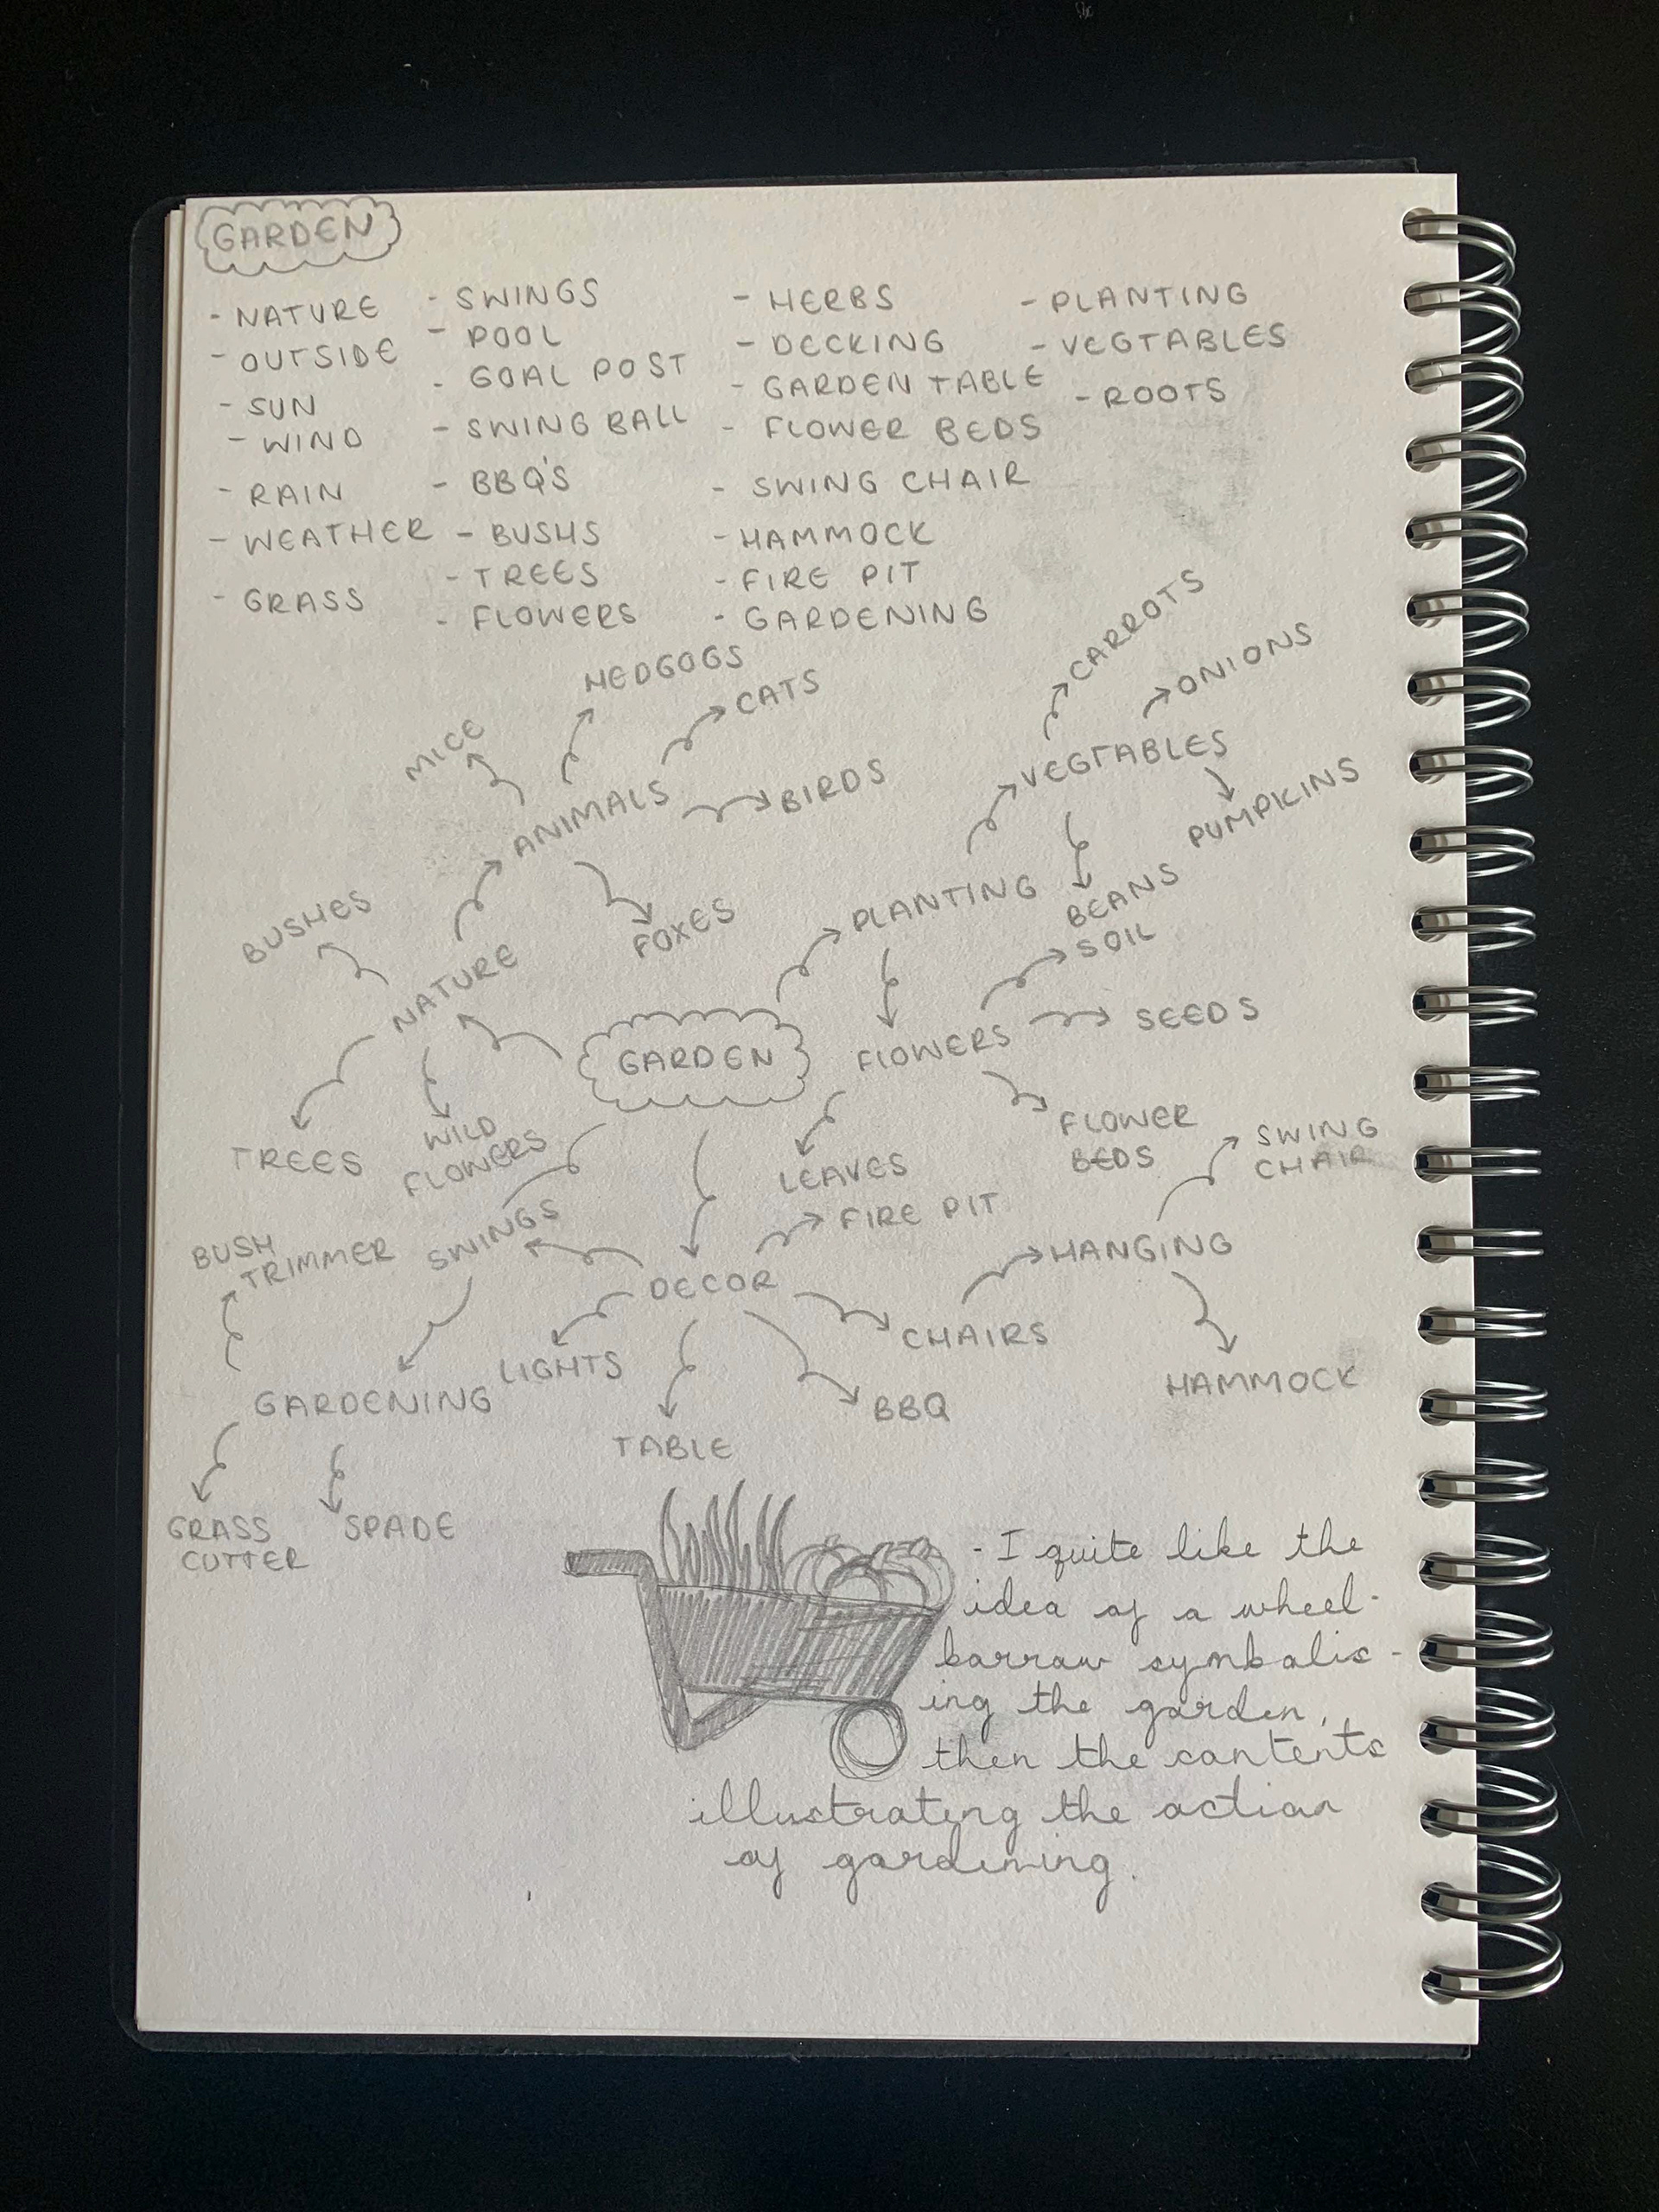 GARDEN
- NATURE
- OUTSIDE
- SUN
- WIND
- RAIN
- WEATHER
- GRASS
- SWINGS
- POOL
- GOAL POST
- SWING BALL
- BBQ'S
- BUSHS
- TREES
- FLOWERS
- HERBS
- DECKING
- GARDEN TABLE
- FLOWER BEDS
- SWING CHAIR
- HAMMOCK
- FIRE PIT
- GARDENING
- PLANTING
- VEGTABLES
- ROOTS
GARDEN
NATURE
BUSHES
TREES
WILD
FLOWERS
ANIMALS
MICE
HEDGOGS
CATS
BIRDS
FOXES
PLANTING
VEGTABLES
CARROTS
ONIONS
PUMPKINS
BEANS
FLOWERS
SOIL
SEEDS
FLOWER
BEDS
LEAVES
DECOR
FIRE PIT
SWINGS
LIGHTS
TABLE
BBQ
CHAIRS
HANGING
SWING
CHAIR
HAMMOCK
GARDENING
BUSH
TRIMMER
GRASS
CUTTER
SPADE
- I quite like the
idea of a wheel-
barrow symbolis-
ing the garden,
then the contents
illustrating the action
of gardening.